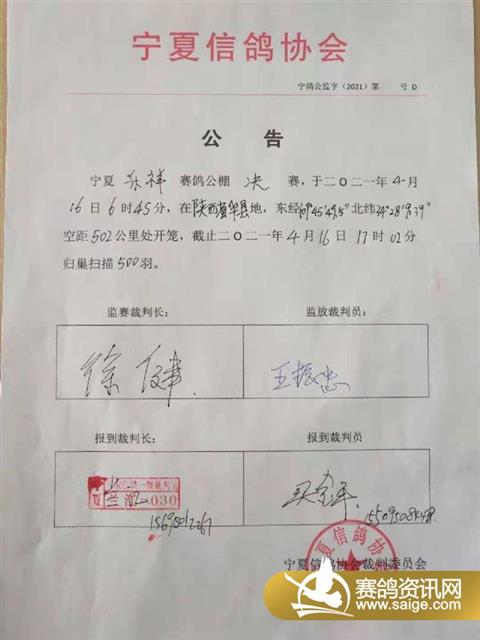 宁夏信鸽协会
宁鸽公监字（2021）第 号 D
公 告
宁夏 东祥 赛鸽公棚 决 赛，于二〇二一年 4 月
16 日 6 时 45 分，在 陕西省华县 地，东经 109°45'49.5" 北纬 34°28'9.39"
空距 502 公里处开笼，截止二〇二一年 4 月 16 日 17 时 02 分
归巢扫描 500 羽。
监赛裁判长： 监放裁判员：
徐 王振忠
报到裁判长： 报到裁判员
030
宁夏信鸽协会裁判委员会
赛鸽资讯网
www.saige.com